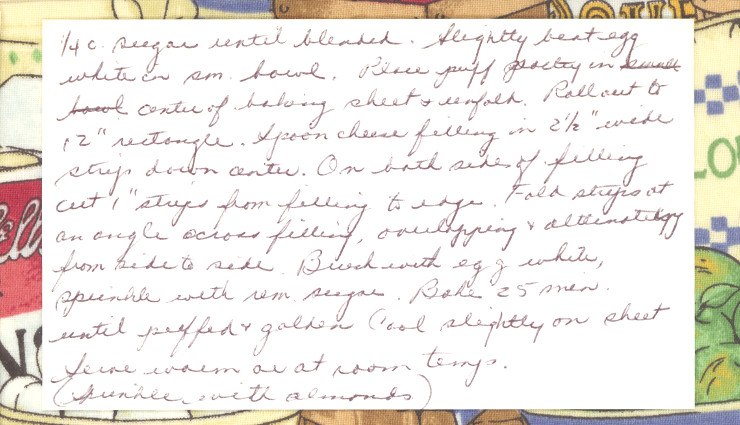 1/4 c. sugar until blended. Slightly beat egg
white in sm. bowl. Place puff pastry in small
bowl center of baking sheet & unfold. Roll out to
12" rectangle. Spoon cheese filling in 2 1/2" wide
strip down center. On both sides of filling
cut 1" strips from filling to edge. Fold strips at
an angle across filling, overlapping & alternating
from side to side. Brush with egg white,
sprinkle with rem. sugar. Bake 25 min.
until puffed & golden Cool slightly on sheet
Serve warm or at room temp.
(Sprinkle with almonds)